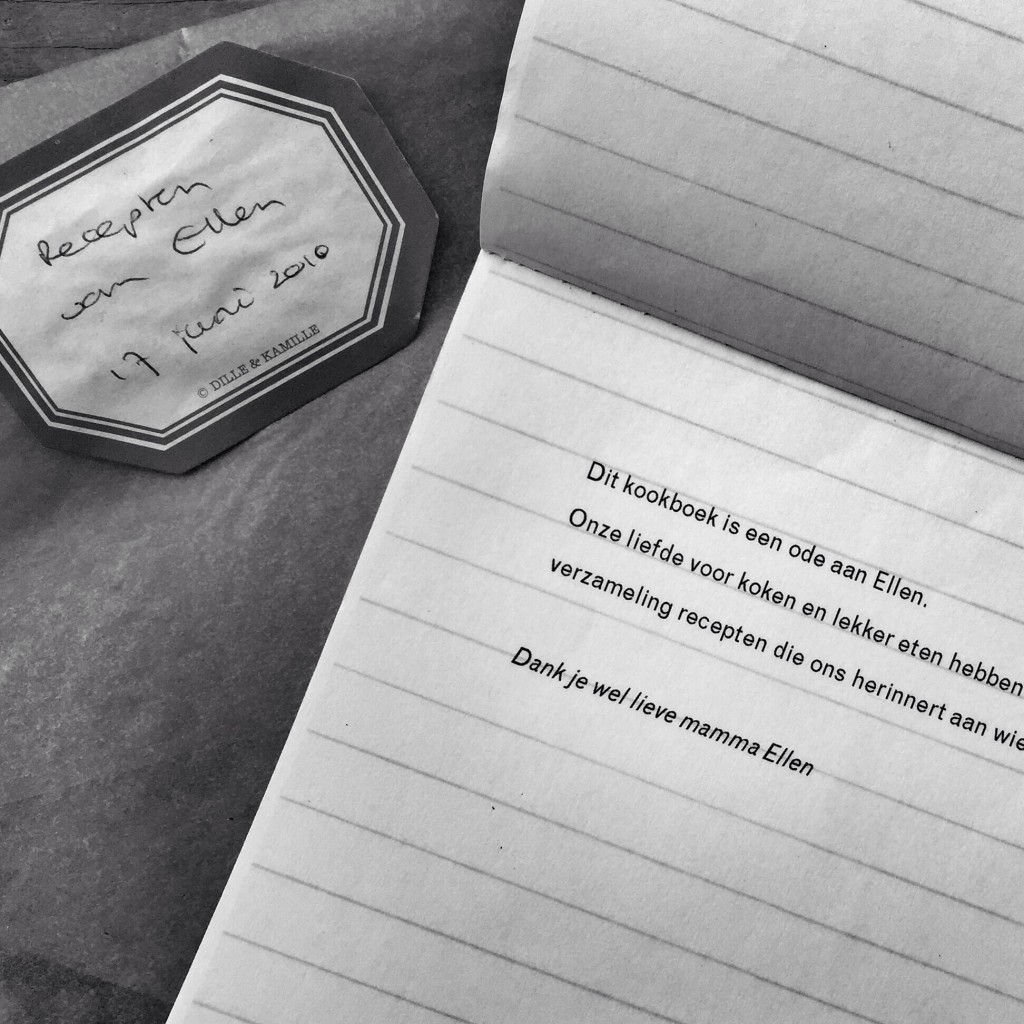 Recepten
van Ellen
17 juni 2010
© DILLE & KAMILLE
Dit kookboek is een ode aan Ellen.
Onze liefde voor koken en lekker eten hebben
verzameling recepten die ons herinnert aan wie
Dank je wel lieve mamma Ellen